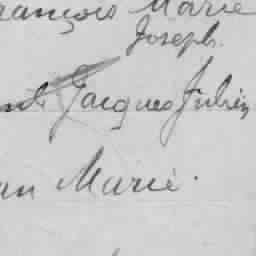 rançois Marie
Joseph
Jacques Julien
an Marie.